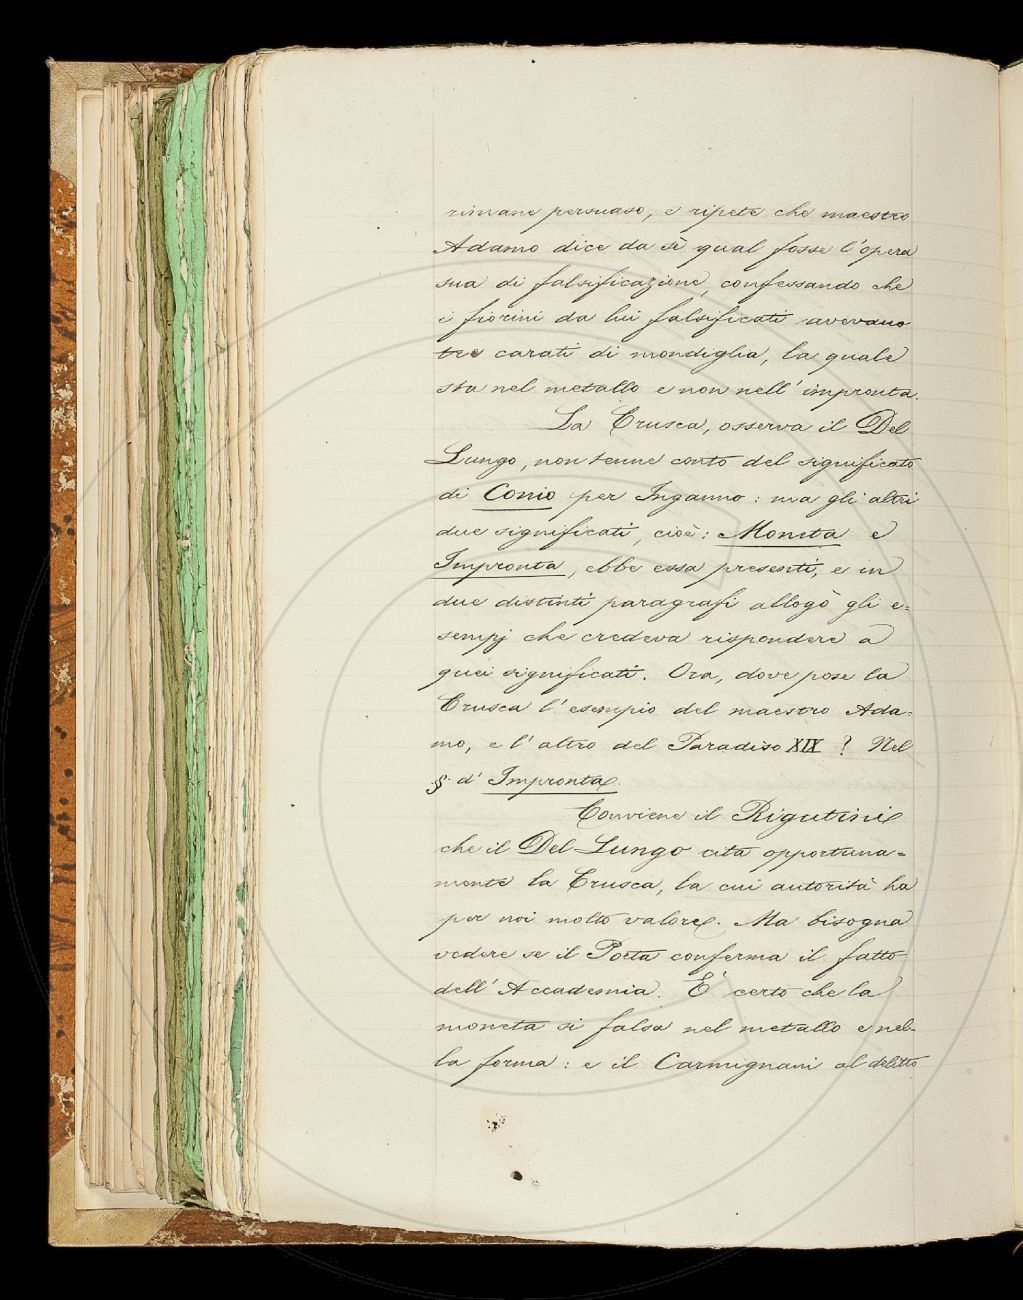 rimane persuaso, e ripete che maestro
Adamo dice da sè qual fosse l'opera
sua di falsificazione, confessando che
i fiorini da lui falsificati avevano
tre carati di mondiglia, la quale
sta nel metallo e non nell'impronta.
La Crusca, osserva il Del
Lungo, non tenne conto del significato
di Conio per Inganno: ma gli altri
due significati, cioè: Moneta e
Impronta, ebbe essa presenti, e in
due distinti paragrafi allogò gli e=
sempj che credeva rispondere a
quei significati. Ora, dove pose la
Crusca l'esempio del maestro Ada=
mo, e l'altro del Paradiso XIX? Nel
§. d'Impronta.
Conviene il Rigutini
che il Del-Lungo cita opportuna=
mente la Crusca, la cui autorità ha
per noi molto valore. Ma bisogna
vedere se il Poeta conferma il fatto
dell'Accademia. È certo che la
moneta si falsa nel metallo e nel-
la forma: e il Carmignani al delitto